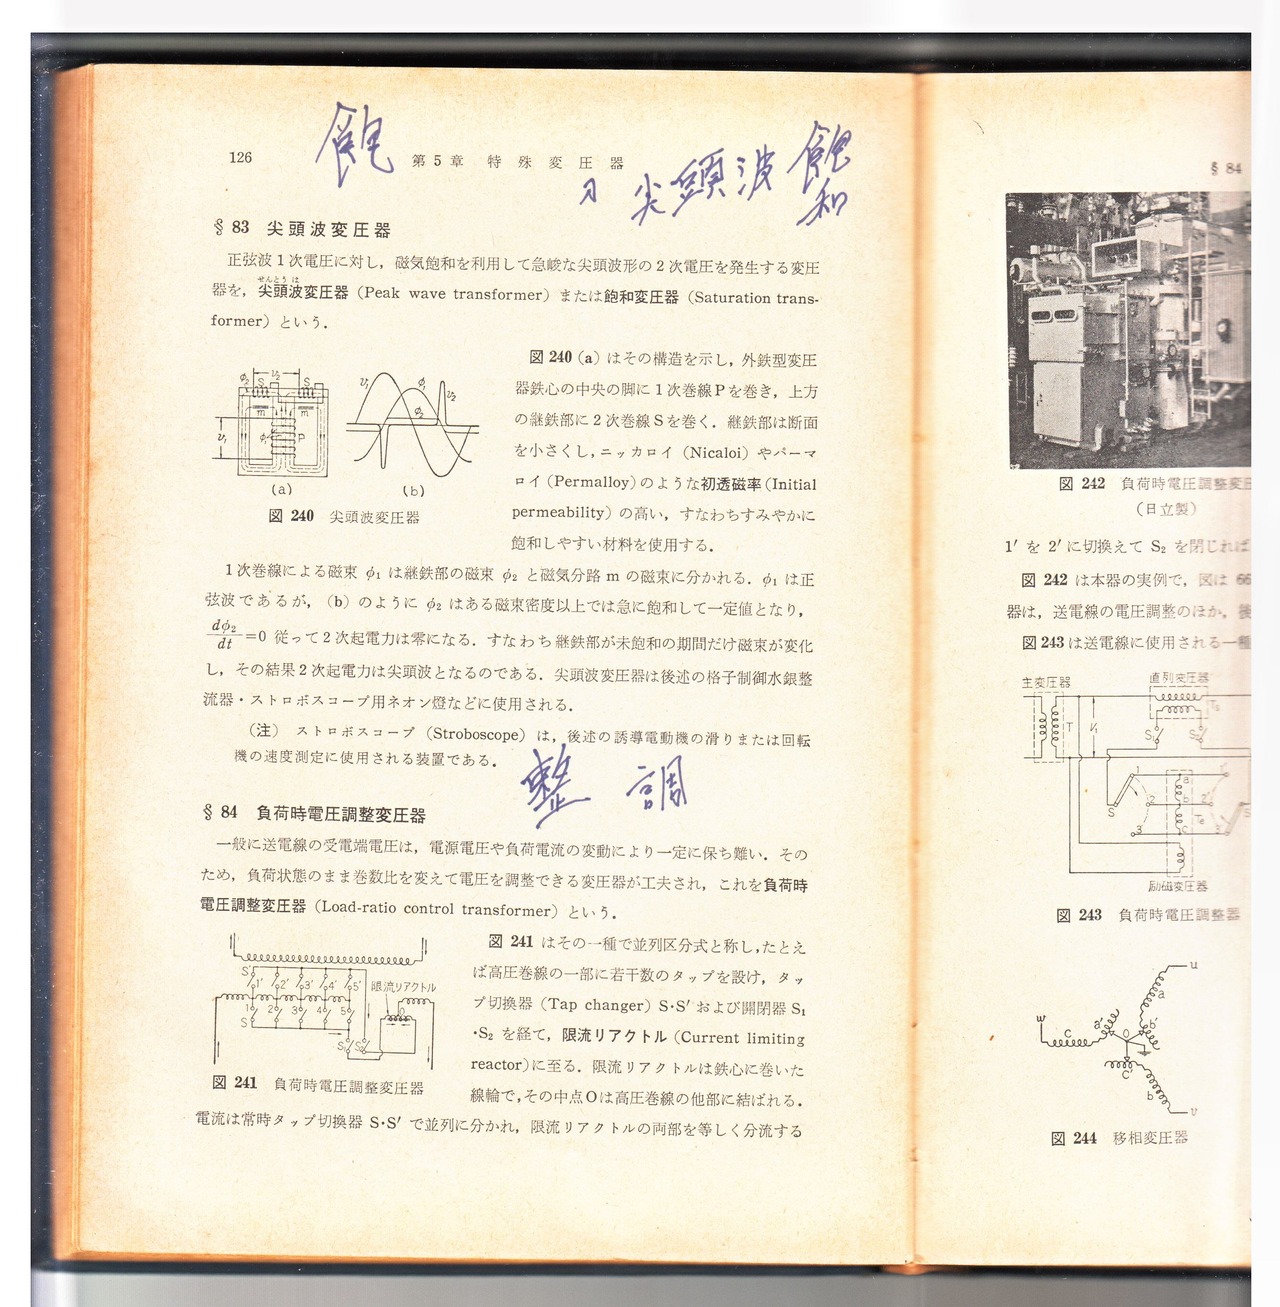 126
第5章 特殊変圧器
飽
尖頭波飽
和
§ 83 尖頭波変圧器
正弦波1次電圧に対し，磁気飽和を利用して急峻な尖頭波形の2次電圧を発生する変圧
せんとうは
器を，尖頭波変圧器（Peak wave transformer）または飽和変圧器（Saturation trans-
former）という．
図 240 (a) はその構造を示し，外鉄型変圧
器鉄心の中央の脚に1次巻線Pを巻き，上方
の継鉄部に2次巻線Sを巻く．継鉄部は断面
を小さくし，ニッカロイ（Nicaloi）やパーマ
ロイ（Permalloy）のような初透磁率（Initial
permeability）の高い，すなわちすみやかに
飽和しやすい材料を使用する．
φ₂ v₂ S S m m v₁ φ₁ P
v₁ φ₁ v₂ φ₂
(a) (b)
図 240 尖頭波変圧器
1次巻線による磁束 φ₁ は継鉄部の磁束 φ₂ と磁気分路 m の磁束に分かれる．φ₁ は正
弦波であるが，(b) のように φ₂ はある磁束密度以上では急に飽和して一定値となり，
dφ₂/dt=0 従って2次起電力は零になる．すなわち継鉄部が未飽和の期間だけ磁束が変化
し，その結果2次起電力は尖頭波となるのである．尖頭波変圧器は後述の格子制御水銀整
流器・ストロボスコープ用ネオン燈などに使用される．
（注） ストロボスコープ（Stroboscope）は，後述の誘導電動機の滑りまたは回転
機の速度測定に使用される装置である．
整 調
§ 84 負荷時電圧調整変圧器
一般に送電線の受電端電圧は，電源電圧や負荷電流の変動により一定に保ち難い．その
ため，負荷状態のまま巻数比を変えて電圧を調整できる変圧器が工夫され，これを負荷時
電圧調整変圧器（Load-ratio control transformer）という．
図 241 はその一種で並列区分式と称し，たとえ
ば高圧巻線の一部に若干数のタップを設け，タッ
プ切換器（Tap changer）S·S′ および開閉器 S₁
·S₂ を経て，限流リアクトル（Current limiting
reactor）に至る．限流リアクトルは鉄心に巻いた
線輪で，その中点Oは高圧巻線の他部に結ばれる．
S′ 1′ 2′ 3′ 4′ 5′ 限流リアクトル
1 2 3 4 5
S S₁ S₂
図 241 負荷時電圧調整変圧器
電流は常時タップ切換器 S·S′ で並列に分かれ，限流リアクトルの両部を等しく分流する
§ 84
図 242 負荷時電圧調整変圧
（日立製）
1′ を 2′ に切換えて S₂ を閉じれば
図 242 は本器の実例で，図は 66
器は，送電線の電圧調整のほか，後
図 243 は送電線に使用される一種
主変圧器 直列変圧器
T V₁ S₁ S₂
1 a 1′
2 b 2′
S 3 c 3′
励磁変圧器
図 243 負荷時電圧調整器
u a
w c a′ O b′
c′ b v
図 244 移相変圧器